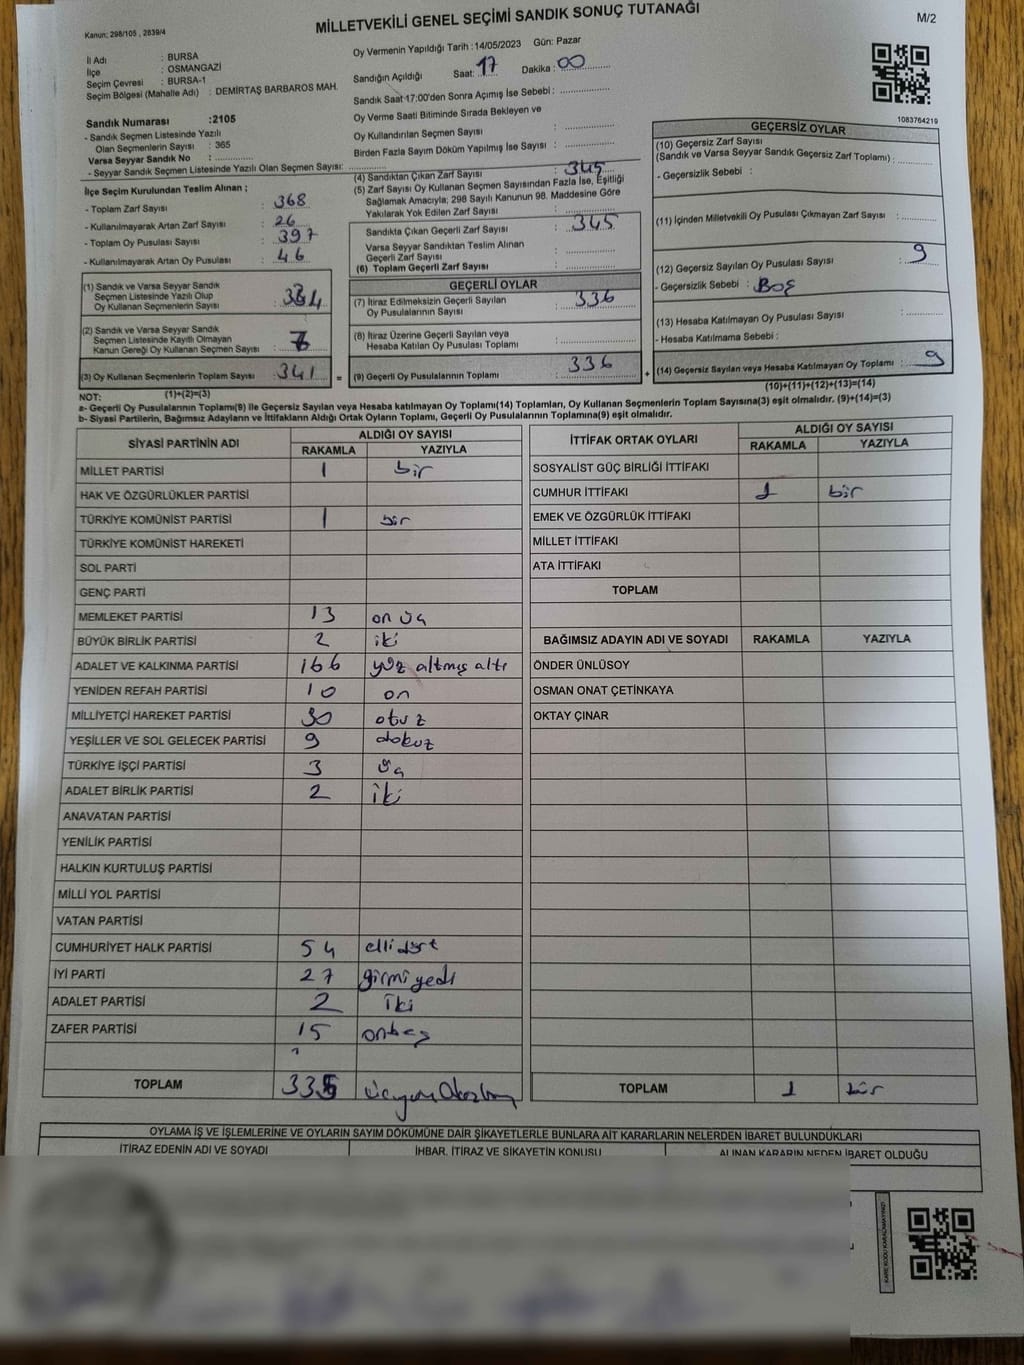 Kanun: 298/105 , 2839/4
MİLLETVEKİLİ GENEL SEÇİMİ SANDIK SONUÇ TUTANAĞI
M/2
İl Adı : BURSA
İlçe : OSMANGAZİ
Seçim Çevresi : BURSA-1
Seçim Bölgesi (Mahalle Adı) : DEMİRTAŞ BARBAROS MAH.
Sandık Numarası :2105
- Sandık Seçmen Listesinde Yazılı
Olan Seçmenlerin Sayısı : 365
Varsa Seyyar Sandık No :
- Seyyar Sandık Seçmen Listesinde Yazılı Olan Seçmen Sayısı:
İlçe Seçim Kurulundan Teslim Alınan ;
- Toplam Zarf Sayısı : 368
- Kullanılmayarak Artan Zarf Sayısı : 26
- Toplam Oy Pusulası Sayısı : 397
- Kullanılmayarak Artan Oy Pusulası : 46
(1) Sandık ve Varsa Seyyar Sandık
Seçmen Listesinde Yazılı Olup
Oy Kullanan Seçmenlerin Sayısı : 334
(2) Sandık ve Varsa Seyyar Sandık
Seçmen Listesinde Kayıtlı Olmayan
Kanun Gereği Oy Kullanan Seçmen Sayısı : 7
(3) Oy Kullanan Seçmenlerin Toplam Sayısı : 341 =
Oy Vermenin Yapıldığı Tarih :14/05/2023 Gün: Pazar
Sandığın Açıldığı Saat: 17 Dakika : 00
Sandık Saat 17:00'den Sonra Açımış İse Sebebi :
Oy Verme Saati Bitiminde Sırada Bekleyen ve
Oy Kullandırılan Seçmen Sayısı :
Birden Fazla Sayım Döküm Yapılmış İse Sayısı :
(4) Sandıktan Çıkan Zarf Sayısı : 345
(5) Zarf Sayısı Oy Kullanan Seçmen Sayısından Fazla İse, Eşitliği
Sağlamak Amacıyla; 298 Sayılı Kanunun 98. Maddesine Göre
Yakılarak Yok Edilen Zarf Sayısı :
Sandıkta Çıkan Geçerli Zarf Sayısı : 345
Varsa Seyyar Sandıktan Teslim Alınan
Geçerli Zarf Sayısı :
(6) Toplam Geçerli Zarf Sayısı :
GEÇERLİ OYLAR
(7) İtiraz Edilmeksizin Geçerli Sayılan
Oy Pusulalarının Sayısı : 336
(8) İtiraz Üzerine Geçerli Sayılan veya
Hesaba Katılan Oy Pusulası Toplamı :
(9) Geçerli Oy Pusulalarının Toplamı : 336 +
1083764219
GEÇERSİZ OYLAR
(10) Geçersiz Zarf Sayısı
(Sandık ve Varsa Seyyar Sandık Geçersiz Zarf Toplamı) :
- Geçersizlik Sebebi :
(11) İçinden Milletvekili Oy Pusulası Çıkmayan Zarf Sayısı :
(12) Geçersiz Sayılan Oy Pusulası Sayısı : 9
- Geçersizlik Sebebi : Boş
(13) Hesaba Katılmayan Oy Pusulası Sayısı :
- Hesaba Katılmama Sebebi :
(14) Geçersiz Sayılan veya Hesaba Katılmayan Oy Toplamı : 9
NOT: (1)+(2)=(3)
(10)+(11)+(12)+(13)=(14)
a- Geçerli Oy Pusulalarının Toplamı(9) ile Geçersiz Sayılan veya Hesaba Katılmayan Oy Toplamı(14) Toplamları, Oy Kullanan Seçmenlerin Toplam Sayısına(3) eşit olmalıdır. (9)+(14)=(3)
b- Siyasi Partilerin, Bağımsız Adayların ve İttifakların Aldığı Ortak Oyların Toplamı, Geçerli Oy Pusulalarının Toplamına(9) eşit olmalıdır.
SİYASİ PARTİNİN ADI
ALDIĞI OY SAYISI
RAKAMLA YAZIYLA
MİLLET PARTİSİ 1 bir
HAK VE ÖZGÜRLÜKLER PARTİSİ
TÜRKİYE KOMÜNİST PARTİSİ 1 bir
TÜRKİYE KOMÜNİST HAREKETİ
SOL PARTİ
GENÇ PARTİ
MEMLEKET PARTİSİ 13 on üç
BÜYÜK BİRLİK PARTİSİ 2 iki
ADALET VE KALKINMA PARTİSİ 166 yüz altmış altı
YENİDEN REFAH PARTİSİ 10 on
MİLLİYETÇİ HAREKET PARTİSİ 30 otuz
YEŞİLLER VE SOL GELECEK PARTİSİ 9 dokuz
TÜRKİYE İŞÇİ PARTİSİ 3 üç
ADALET BİRLİK PARTİSİ 2 iki
ANAVATAN PARTİSİ
YENİLİK PARTİSİ
HALKIN KURTULUŞ PARTİSİ
MİLLİ YOL PARTİSİ
VATAN PARTİSİ
CUMHURİYET HALK PARTİSİ 54 elli dört
İYİ PARTİ 27 yirmi yedi
ADALET PARTİSİ 2 iki
ZAFER PARTİSİ 15 onbeş
TOPLAM 335
İTTİFAK ORTAK OYLARI
ALDIĞI OY SAYISI
RAKAMLA YAZIYLA
SOSYALİST GÜÇ BİRLİĞİ İTTİFAKI
CUMHUR İTTİFAKI 1 bir
EMEK VE ÖZGÜRLÜK İTTİFAKI
MİLLET İTTİFAKI
ATA İTTİFAKI
TOPLAM
BAĞIMSIZ ADAYIN ADI VE SOYADI RAKAMLA YAZIYLA
ÖNDER ÜNLÜSOY
OSMAN ONAT ÇETİNKAYA
OKTAY ÇINAR
TOPLAM 1 bir
OYLAMA İŞ VE İŞLEMLERİNE VE OYLARIN SAYIM DÖKÜMÜNE DAİR ŞİKAYETLERLE BUNLARA AİT KARARLARIN NELERDEN İBARET BULUNDUKLARI
İTİRAZ EDENİN ADI VE SOYADI
İHBAR, İTİRAZ VE ŞİKAYETİN KONUSU
ALINAN KARARIN NEDEN İBARET OLDUĞU